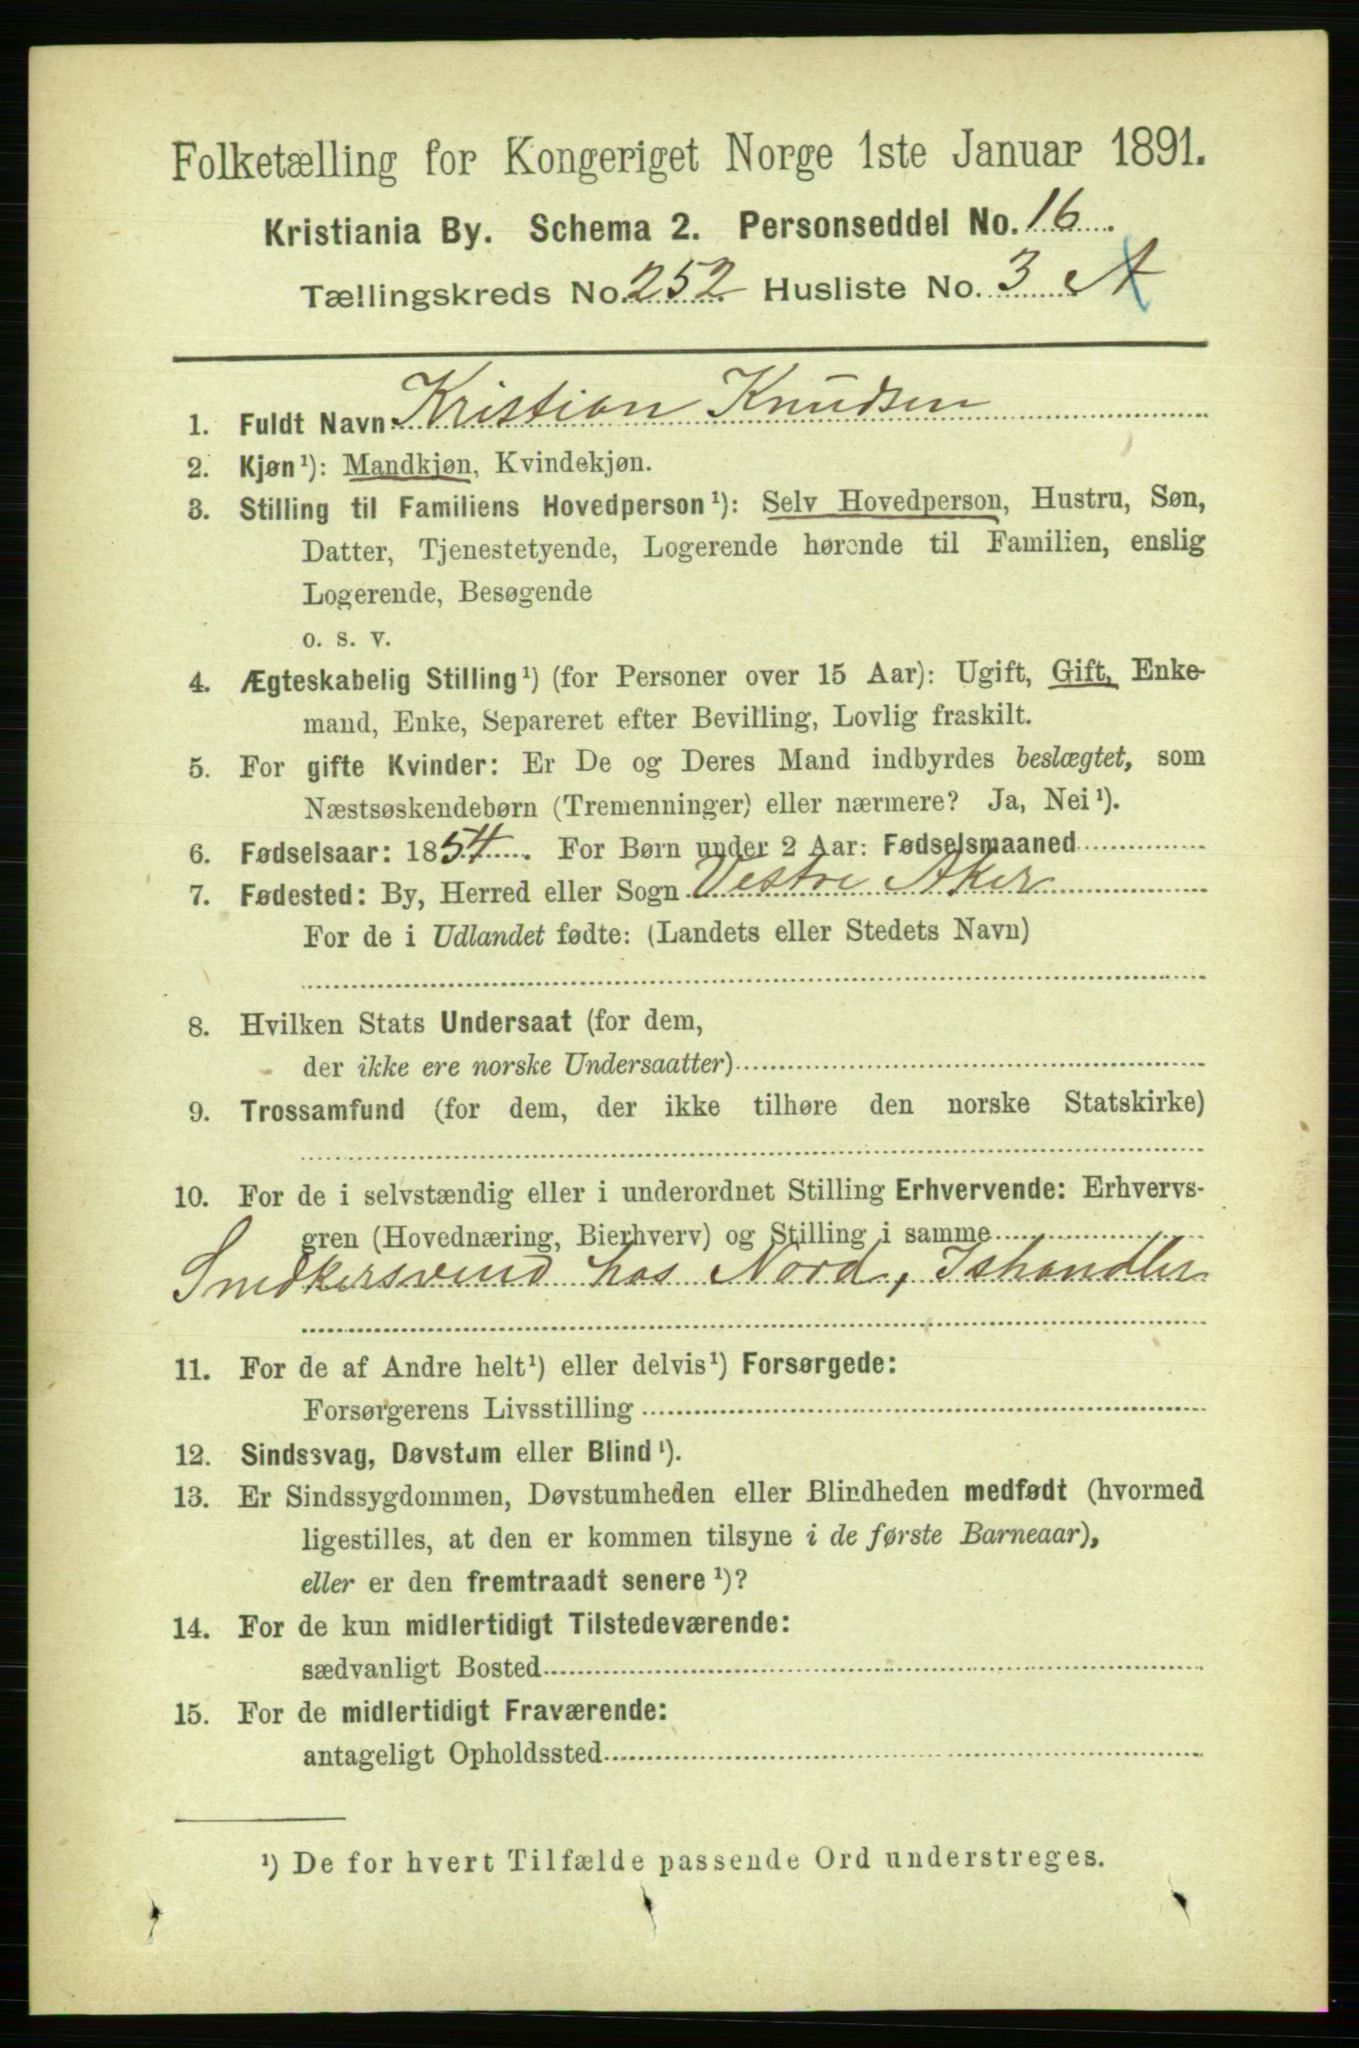 Folketælling for Kongeriget Norge 1ste Januar 1891.
Kristiania By. Schema 2. Personseddel No. 16.
Tællingskreds No. 252 Husliste No. 3 A
1. Fuldt Navn Kristian Knudsen
2. Kjøn¹): Mandkjøn, Kvindekjøn.
3. Stilling til Familiens Hovedperson¹): Selv Hovedperson, Hustru, Søn,
Datter, Tjenestetyende, Logerende hørende til Familien, enslig
Logerende, Besøgende
o. s. v.
4. Ægteskabelig Stilling¹) (for Personer over 15 Aar): Ugift, Gift, Enke-
mand, Enke, Separeret efter Bevilling, Lovlig fraskilt.
5. For gifte Kvinder: Er De og Deres Mand indbyrdes beslægtet, som
Næstsøskendebørn (Tremenninger) eller nærmere? Ja, Nei¹).
6. Fødselsaar: 1854. For Børn under 2 Aar: Fødselsmaaned
7. Fødested: By, Herred eller Sogn Vestre Aker
For de i Udlandet fødte: (Landets eller Stedets Navn)
8. Hvilken Stats Undersaat (for dem,
der ikke ere norske Undersaatter)
9. Trossamfund (for dem, der ikke tilhøre den norske Statskirke)
10. For de i selvstændig eller i underordnet Stilling Erhvervende: Erhvervs-
gren (Hovednæring, Bierhverv) og Stilling i samme
Snedkersvend hos Nord, Ishandler
11. For de af Andre helt¹) eller delvis¹) Forsørgede:
Forsørgerens Livsstilling
12. Sindssvag, Døvstum eller Blind¹).
13. Er Sindssygdommen, Døvstumheden eller Blindheden medfødt (hvormed
ligestilles, at den er kommen tilsyne i de første Barneaar),
eller er den fremtraadt senere¹)?
14. For de kun midlertidigt Tilstedeværende:
sædvanligt Bosted
15. For de midlertidigt Fraværende:
antageligt Opholdssted
¹) De for hvert Tilfælde passende Ord understreges.